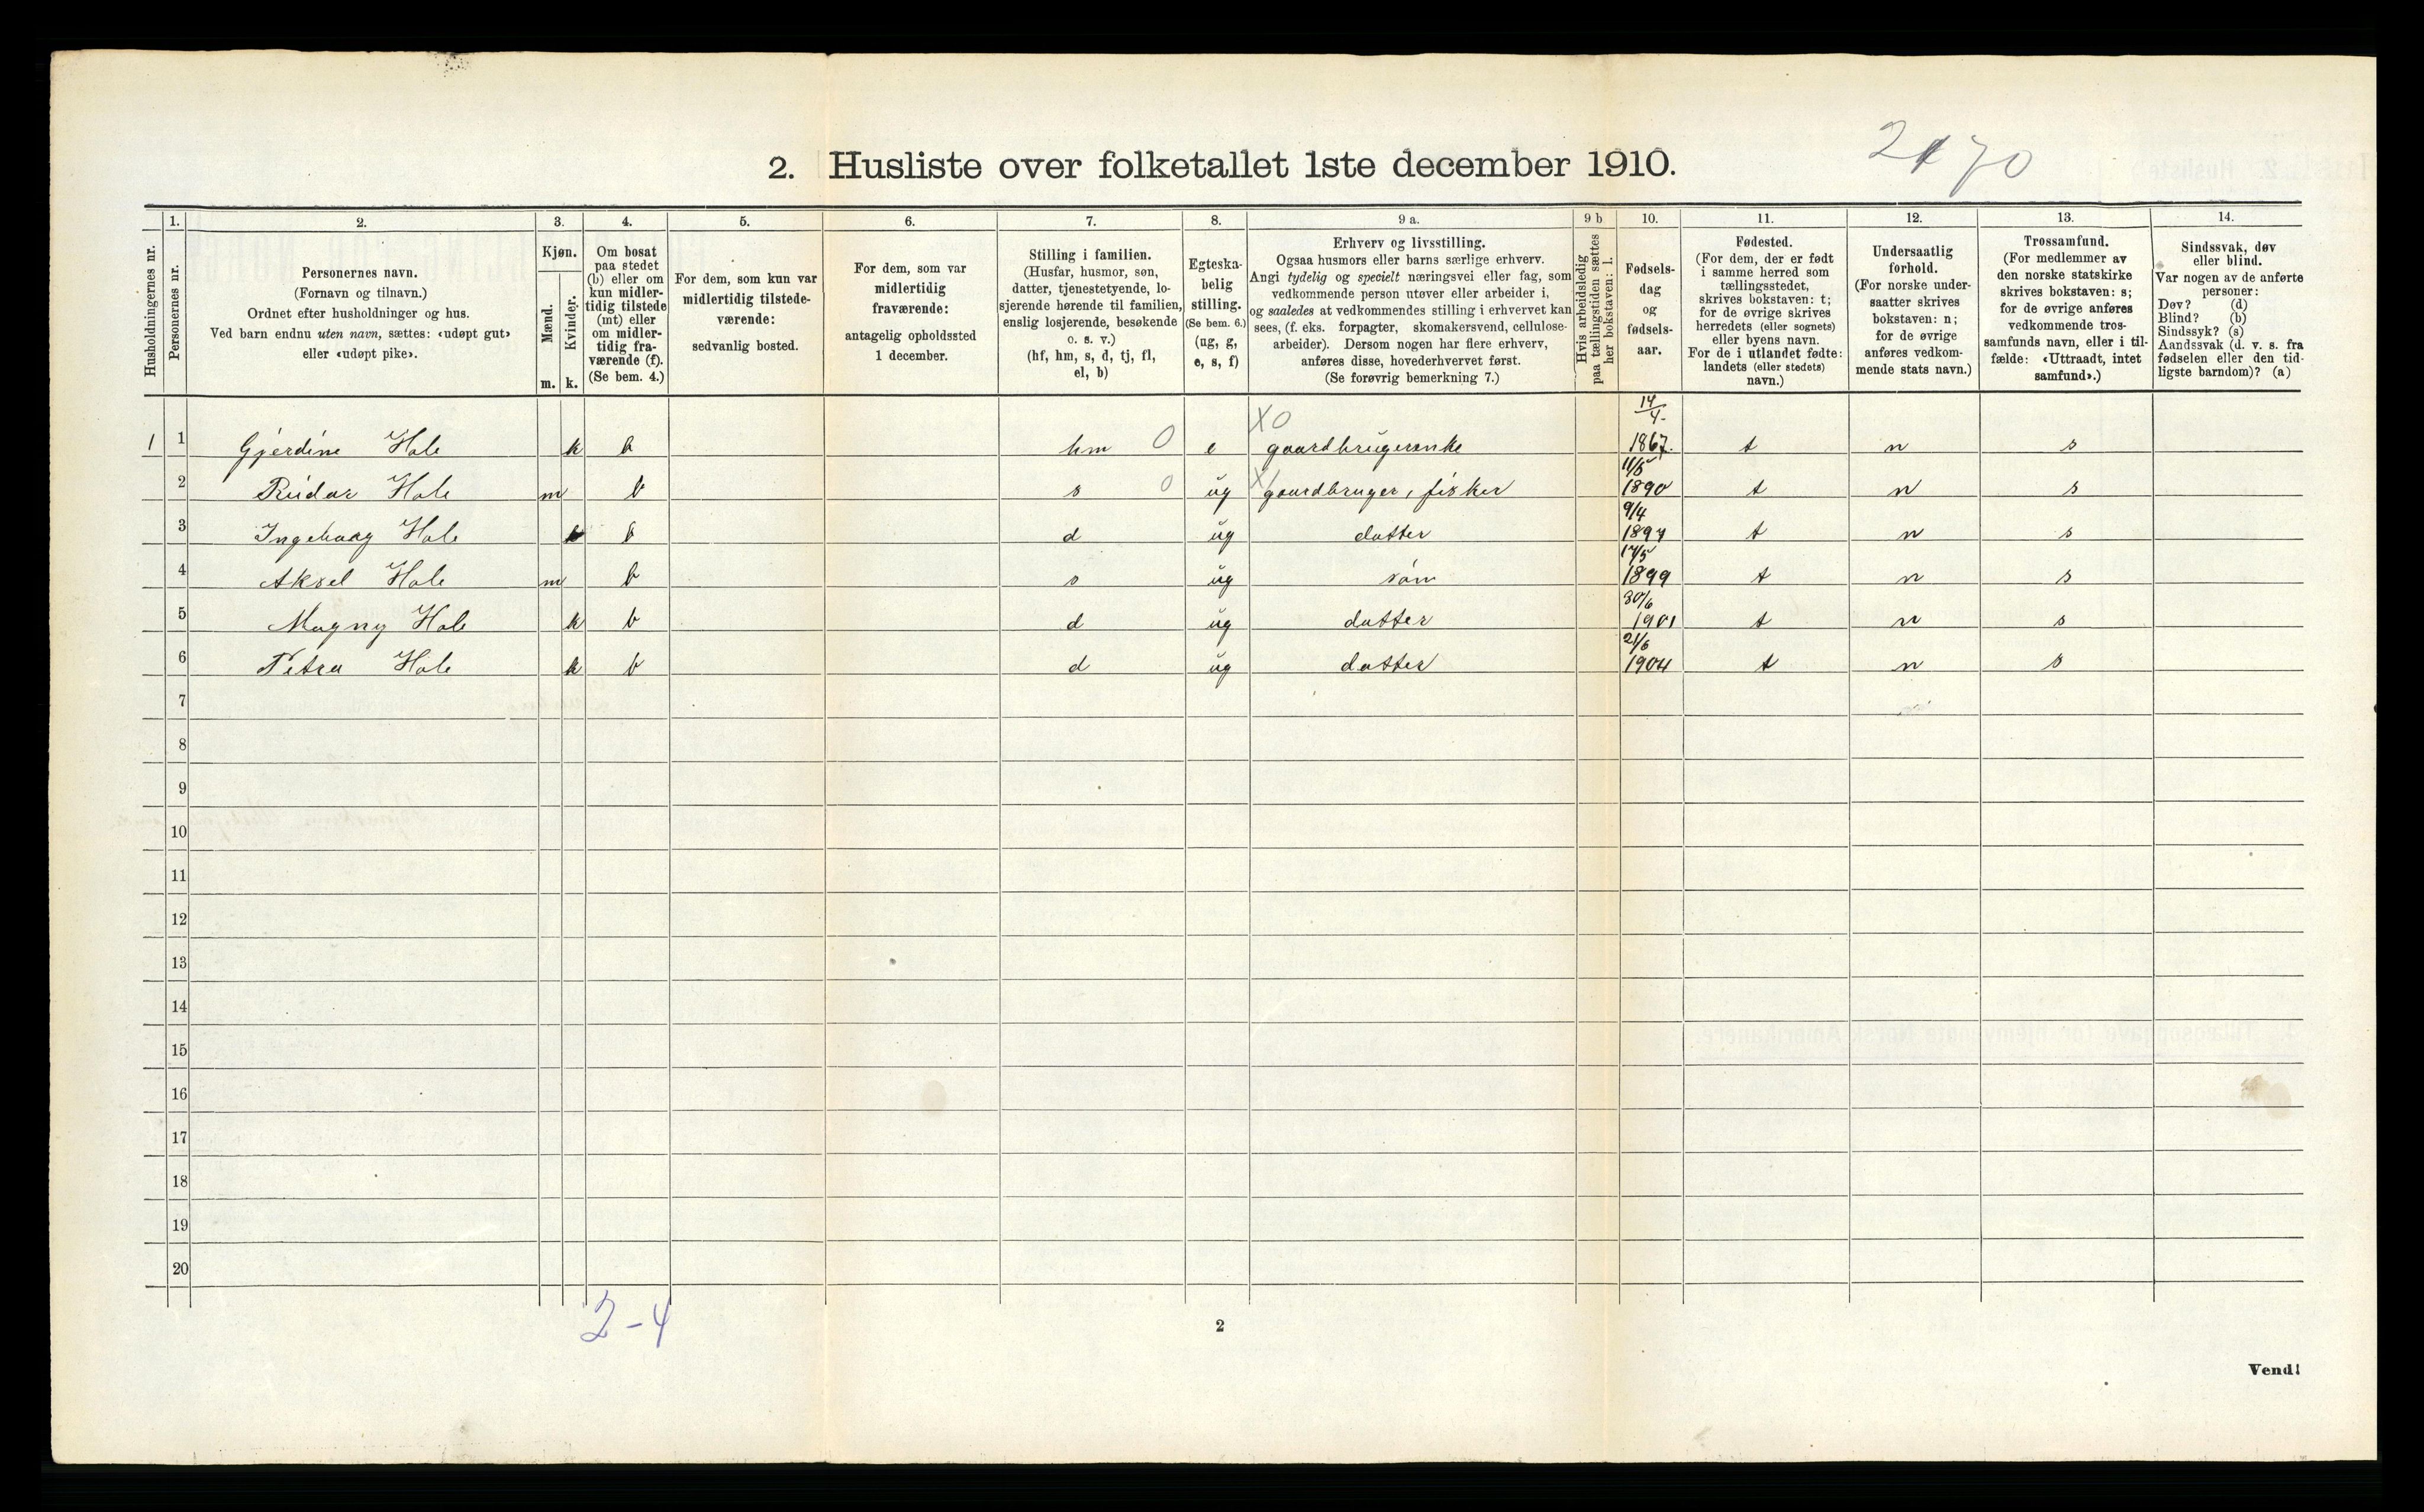 2. Husliste over folketallet 1ste december 1910.
2 70
1. 2. 3. 4. 5. 6. 7. 8. 9 a. 9 b 10. 11. 12. 13. 14.
Husholdningernes nr.
Personernes nr.
Personernes navn.
(Fornavn og tilnavn.)
Ordnet efter husholdninger og hus.
Ved barn endnu uten navn, sættes: «udøpt gut»
eller «udøpt pike».
Kjøn.
Mænd.
Kvinder.
m. k.
Om bosat
paa stedet
(b) eller om
kun midler-
tidig tilstede
(mt) eller
om midler-
tidig fra-
værende (f).
(Se bem. 4.)
For dem, som kun var
midlertidig tilstede-
værende:
sedvanlig bosted.
For dem, som var
midlertidig
fraværende:
antagelig opholdssted
1 december.
Stilling i familien.
(Husfar, husmor, søn,
datter, tjenestetyende, lo-
sjerende hørende til familien,
enslig losjerende, besøkende
o. s. v.)
(hf, hm, s, d, tj, fl,
el, b)
Egteska-
belig
stilling.
(Se bem. 6.)
(ug, g,
e, s, f)
Erhverv og livsstilling.
Ogsaa husmors eller barns særlige erhverv.
Angi tydelig og specielt næringsvei eller fag, som
vedkommende person utøver eller arbeider i,
og saaledes at vedkommendes stilling i erhvervet kan
sees, (f. eks. forpagter, skomakersvend, cellulose-
arbeider). Dersom nogen har flere erhverv,
anføres disse, hovederhvervet først.
(Se forøvrig bemerkning 7.)
Hvis arbeidsledig
paa tællingstiden sættes
her bokstaven: l.
Fødsels-
dag
og
fødsels-
aar.
Fødested.
(For dem, der er født
i samme herred som
tællingsstedet,
skrives bokstaven: t;
for de øvrige skrives
herredets (eller sognets)
eller byens navn.
For de i utlandet fødte:
landets (eller stedets)
navn.)
Undersaatlig
forhold.
(For norske under-
saatter skrives
bokstaven: n;
for de øvrige
anføres vedkom-
mende stats navn.)
Trossamfund.
(For medlemmer av
den norske statskirke
skrives bokstaven: s;
for de øvrige anføres
vedkommende tros-
samfunds navn, eller i til-
fælde: «Uttraadt, intet
samfund».)
Sindssvak, døv
eller blind.
Var nogen av de anførte
personer:
Døv? (d)
Blind? (b)
Sindssyk? (s)
Aandssvak (d. v. s. fra
fødselen eller den tid-
ligste barndom)? (a)
X0 14/4-
1 1 Gjerdine Hole k b hm 0 e gaardbrugerenke 1867. t n s
11/5
2 Reidar Hole m b s 0 ug X gaardbruger, fisker 1890 t n s
9/4
3 Ingeborg Hole k b d ug datter 1897 t n s
17/5
4 Aksel Hole m b s ug søn 1899 t n s
30/6
5 Magny Hole k b d ug datter 1901 t n s
21/6
6 Petra Hole k b d ug datter 1904 t n s
7
8
9
10
11
12
13
14
15
16
17
18
19
20
2-4
2
Vend!